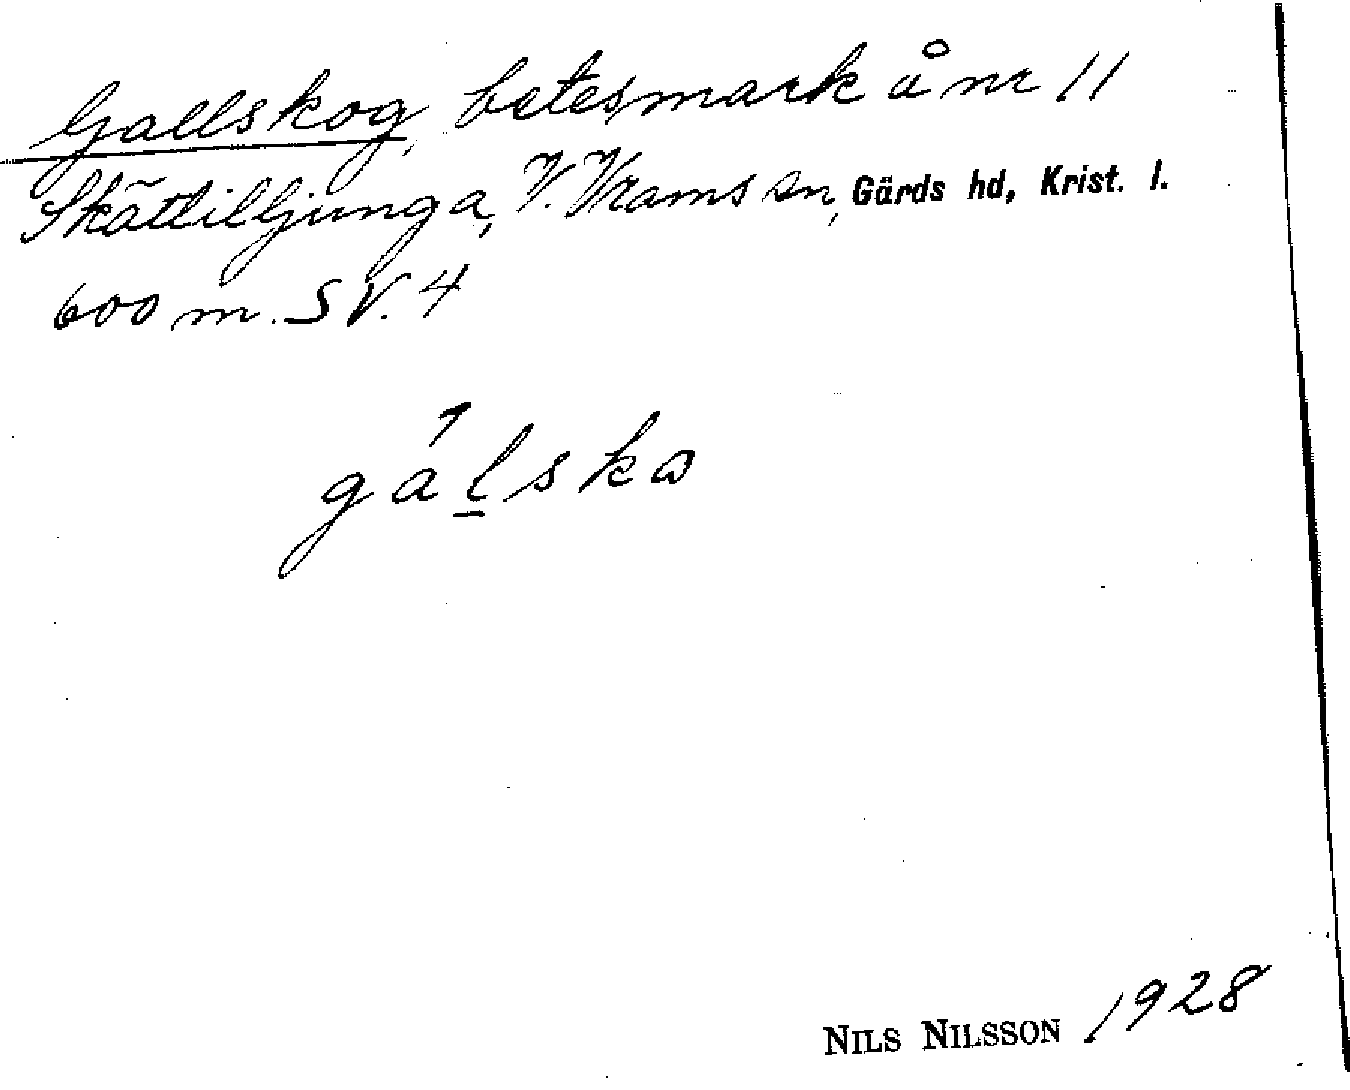 Gallskog, betesmark å nr 11
Skättilljunga, V. Vrams sn, Gärds hd, Krist. l.
600 m. SV. 4
gálska
NILS NILSSON 1928